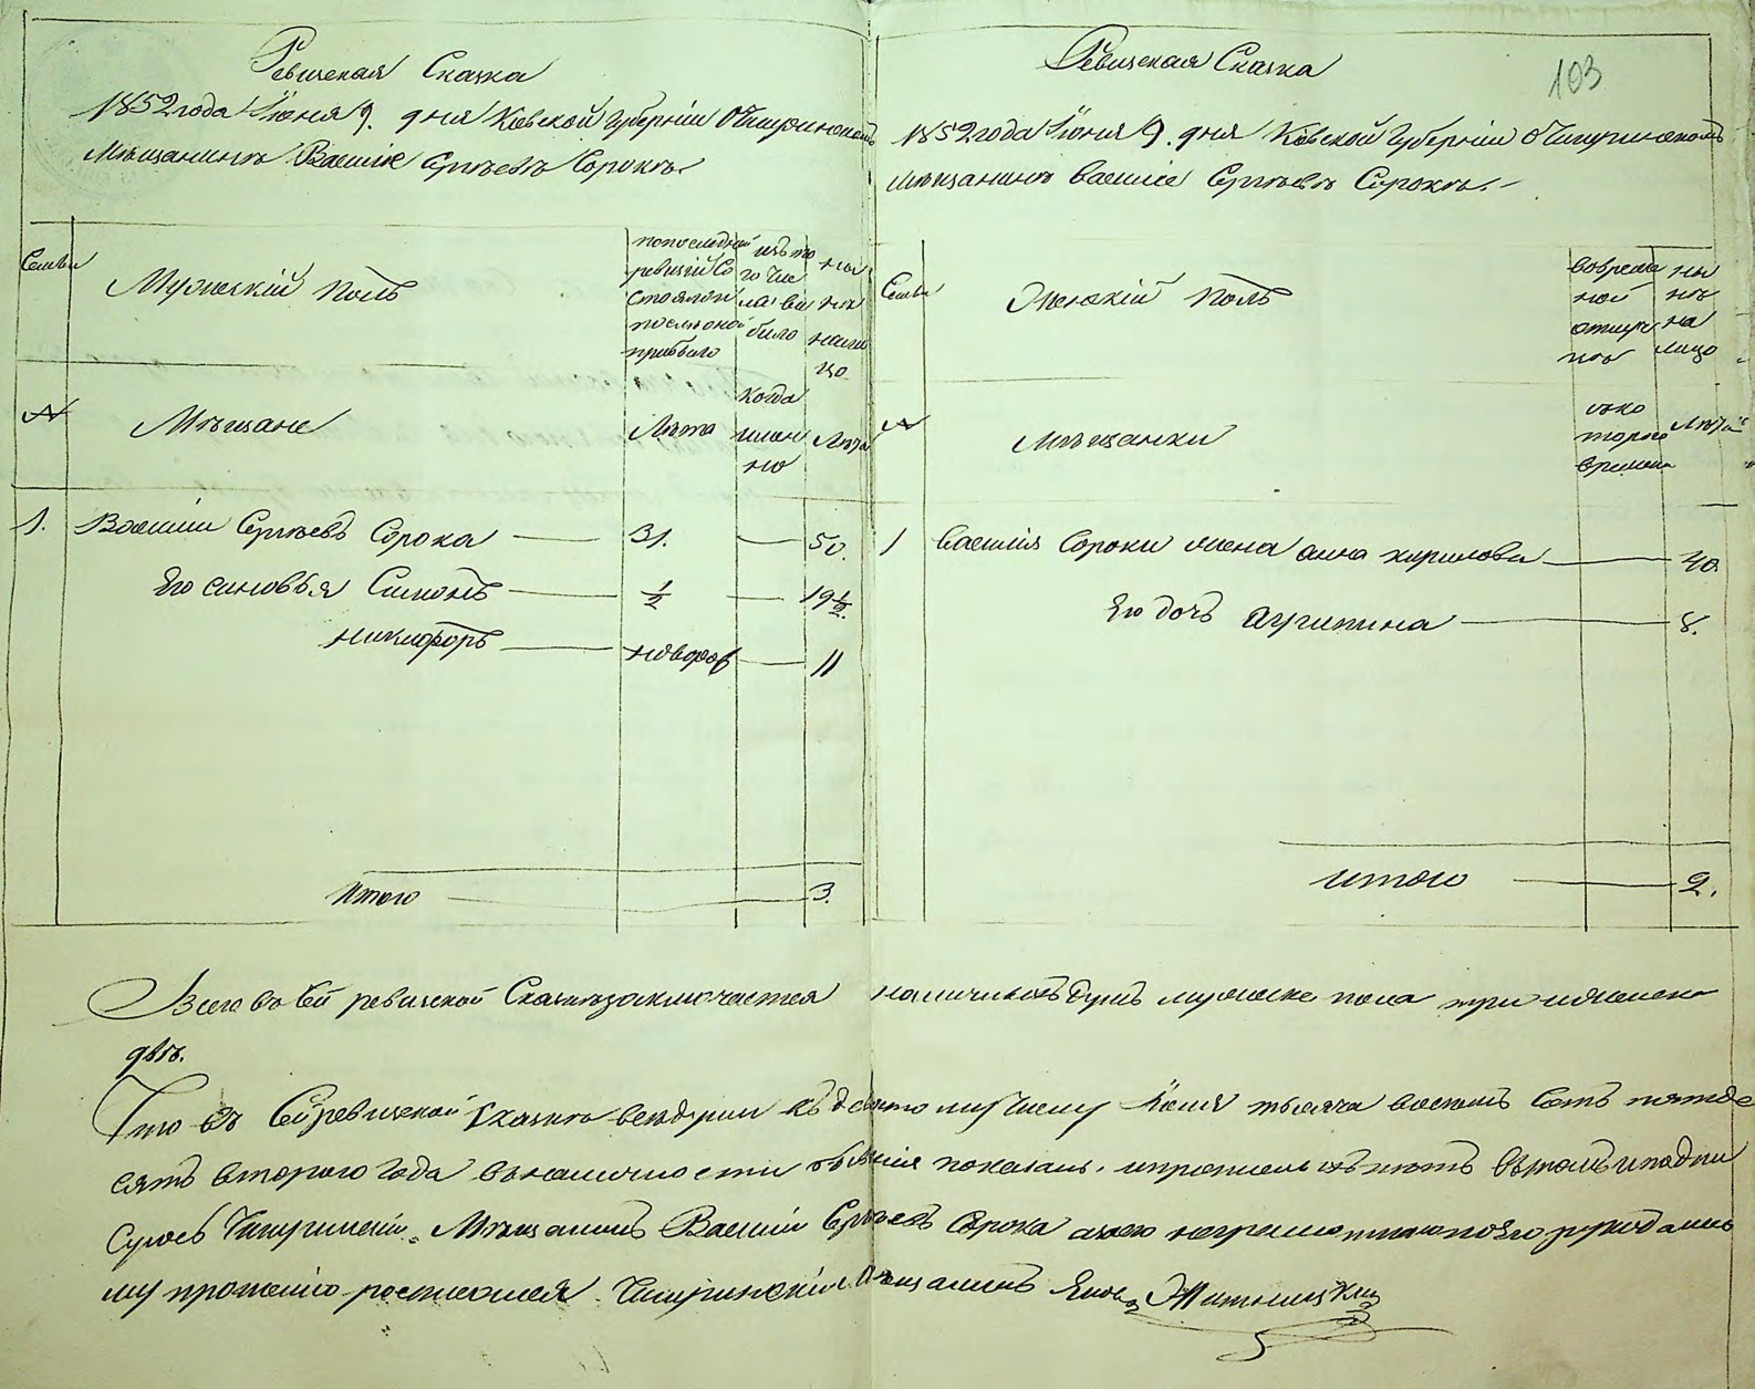 Ревизская Сказка
1852 года Іюня 9. дня Кіевской Губерніи о Чигиринскомъ
Мѣщанинѣ Василіе Сергѣевѣ Сорокѣ.
Семьи
Мужескій Полъ
по последней
ревизіи Со
стояло и
после оной
прибыло
изъ то
го чис
ла вы
было
ны
нѣ
на ли
цо
№
Мѣщане
Лѣта
когда
имен
но
Лѣта
1. Василій Сергѣевъ Сорока 31. 50.
Его сыновья Симонъ 1/2 19 1/2.
Никифоръ новорож 11
Итого 3.
Ревизская Сказка
103
1852 года Іюня 9. дня Кіевской Губерніи о Чигиринскомъ
Мѣщанинѣ Василіе Сергѣевѣ Сорокѣ.
Семьи
Женскій Полъ
во времен
ной
отлуч
кѣ
ны
нѣ
на
лицо
№
Мѣщанки
съ ко
тораго
времени
Лѣта
1 Василія Сороки жена Анна Кирилова 40.
Его дочь Агрипина 8.
Итого 2.
Всего въ Сей ревизской Сказкѣ заключается наличныхъ душъ мужеска пола три и женска
двѣ.
Что въ Сей ревизской Сказкѣ все души къ девятому числу Іюня тысяча восемь Сотъ пятьде
сятъ второго года въ наличности показаны, и прописныхъ нѣтъ въ томъ и подпи
Суюсь Чигиринскій Мѣщанинъ Василій Сергѣевъ Сорока а за его неграмотностію по его рукоданно
му прошенію росписался Чигиринскій Мѣщанинъ Яковъ Житницкій